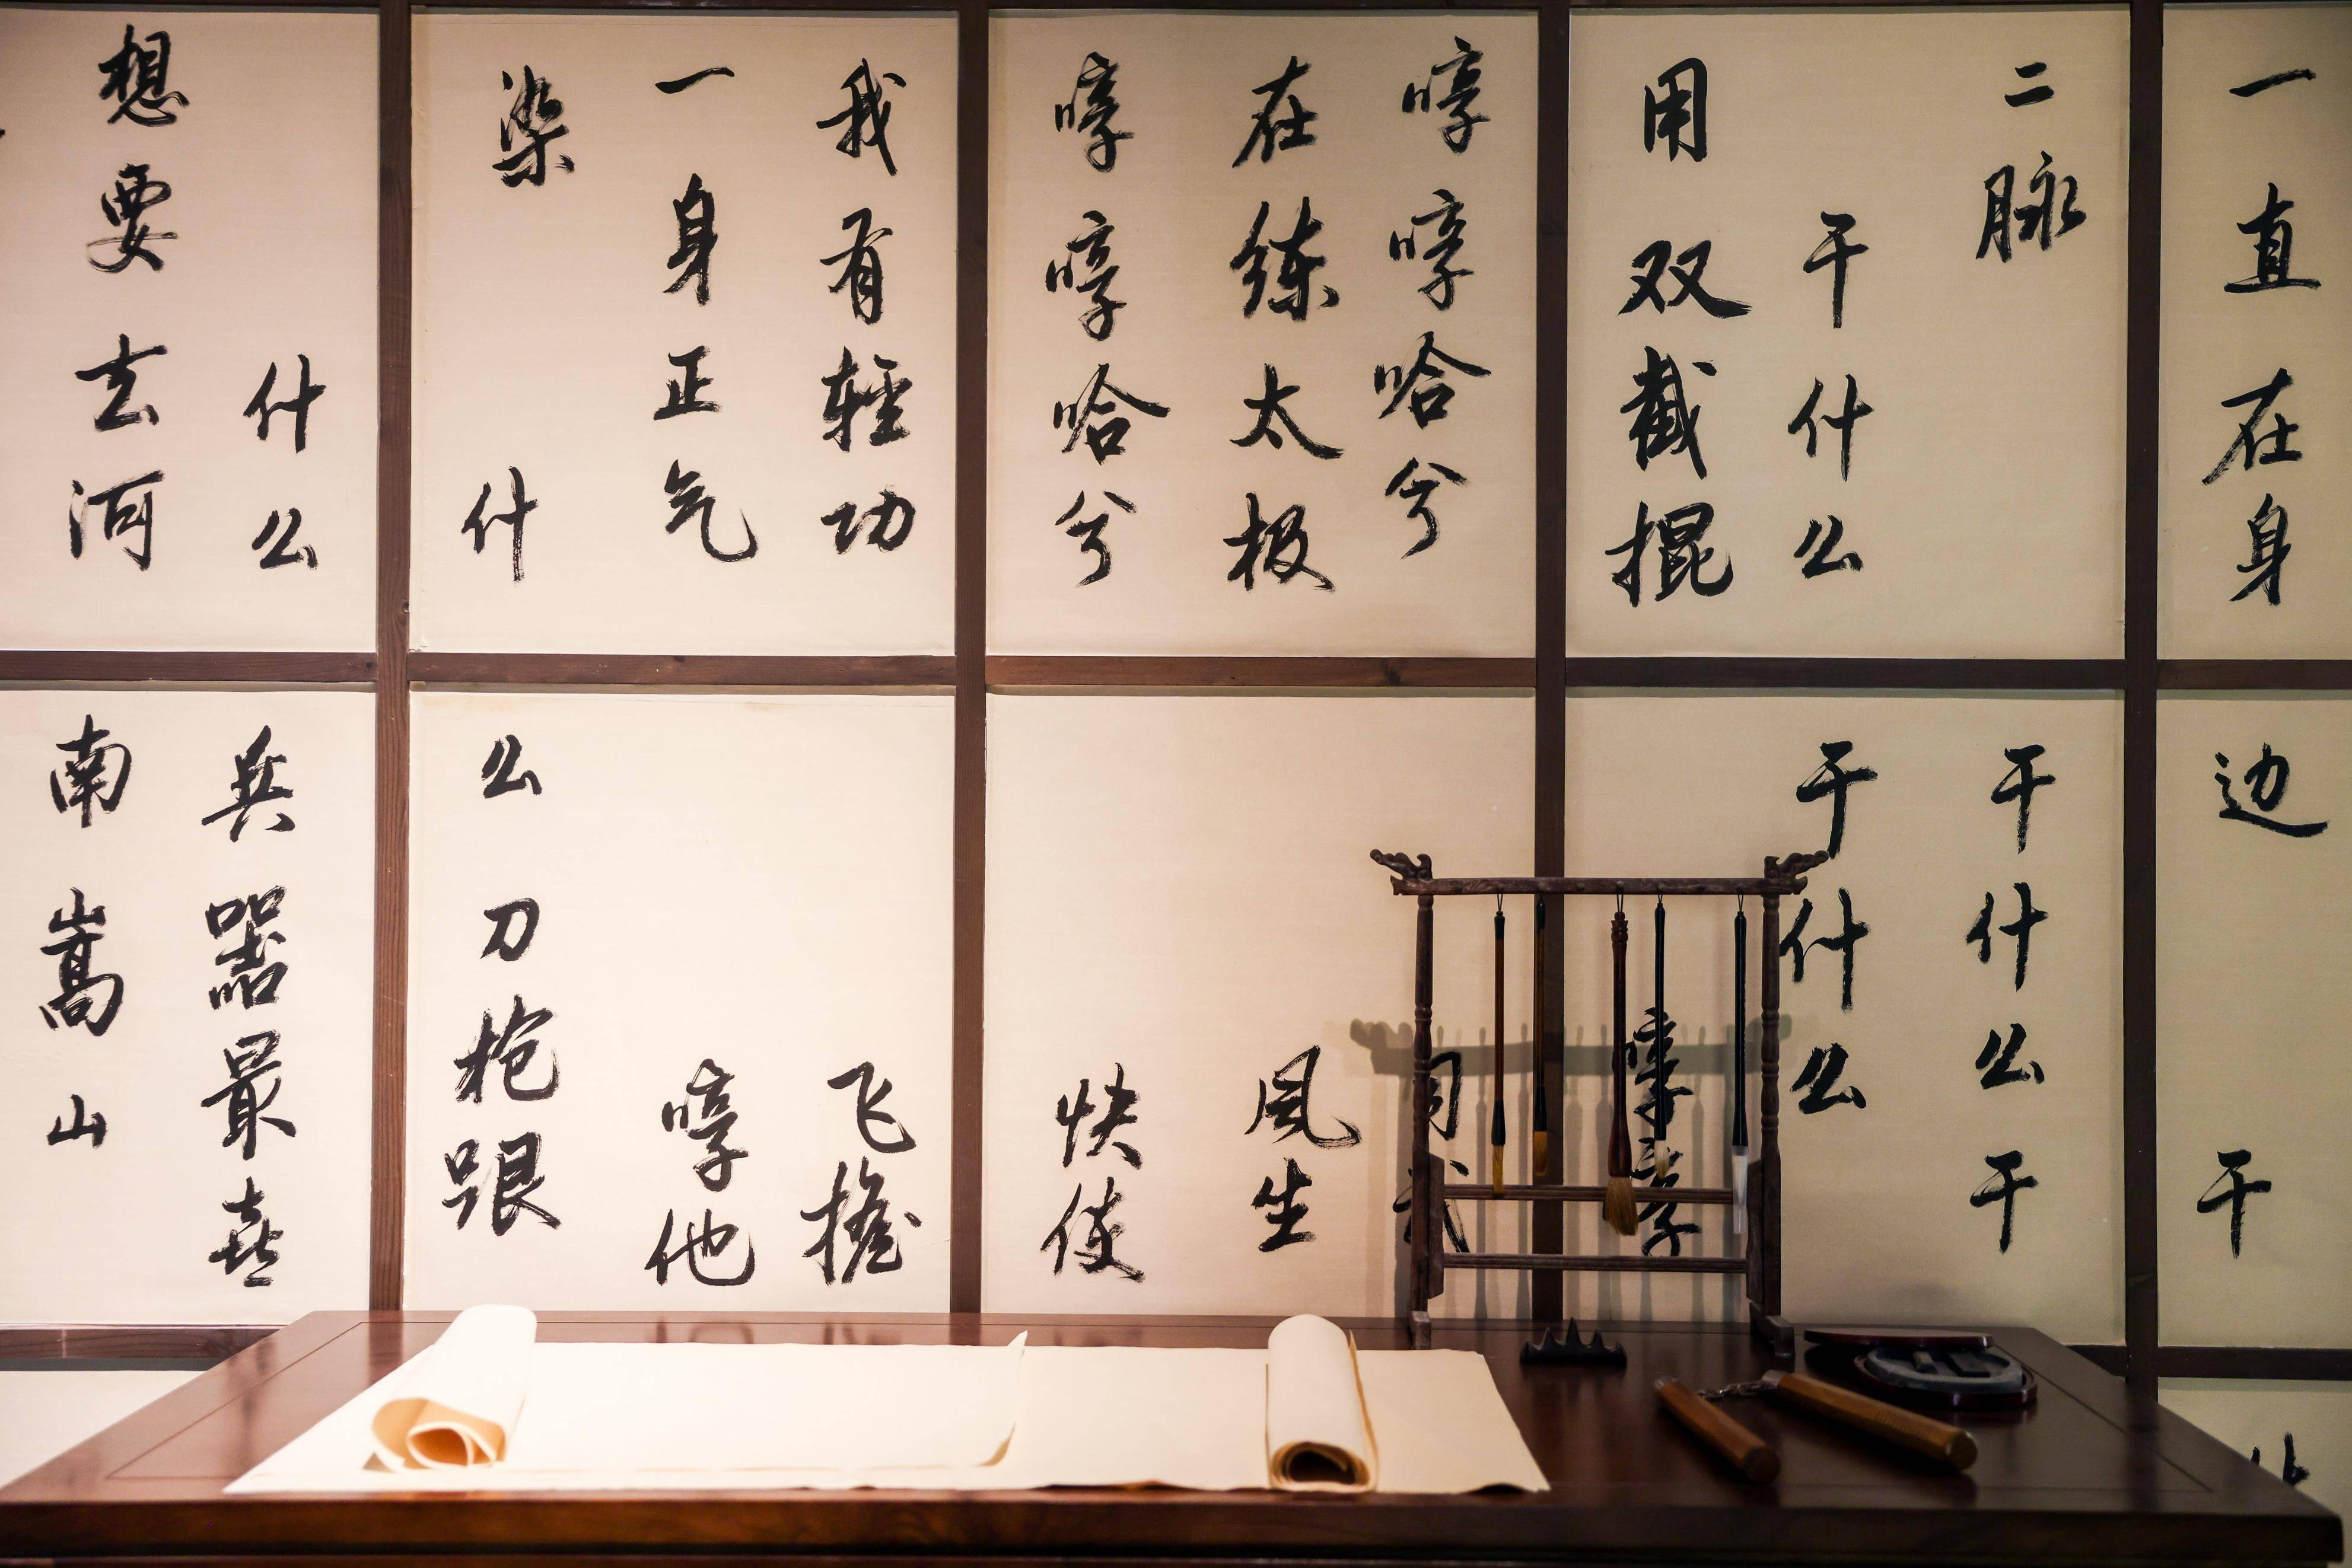 一直在身边 干
二脉 干什么 干
干什么 干什么
用双截棍 哼
哼哼哈兮 习武
在练太极 风生
哼哼哈兮 快使
我有輕功 飞檐
一身正气 哼 他
染 什么刀枪跟
什么 兵器最喜
想要去河南嵩山